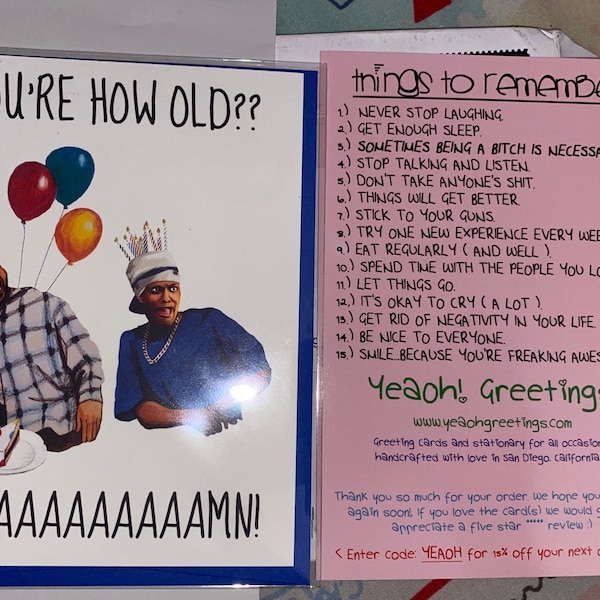 OU'RE HOW OLD??
AAAAAAAAAAAMN!
things to remembe
1.) NEVER STOP LAUGHING.
2.) GET ENOUGH SLEEP.
3.) SOMETIMES BEING A BITCH IS NECESSA
4.) STOP TALKING AND LISTEN.
5.) DON'T TAKE ANYONE'S SHIT.
6.) THINGS WILL GET BETTER.
7.) STICK TO YOUR GUNS.
8.) TRY ONE NEW EXPERIENCE EVERY WEE
9.) EAT REGULARLY ( AND WELL ).
10.) SPEND TINE WITH THE PEOPLE YOU LO
11.) LET THINGS GO.
12.) IT'S OKAY TO CRY ( A LOT ).
13.) GET RID OF NEGATIVITY IN YOUR LIFE.
14.) BE NICE TO EVERYONE.
15.) SMILE...BECAUSE YOU'RE FREAKING AWES
Yeaoh! Greetings
www.yeaohgreetings.com
Greeting cards and stationary for all occasion
handcrafted with love in San Diego, California
Thank you so much for your order. We hope you
again soon! If you love the card(s) we would g
appreciate a five star ***** review :)
< Enter code: YEAOH for 15% off your next o